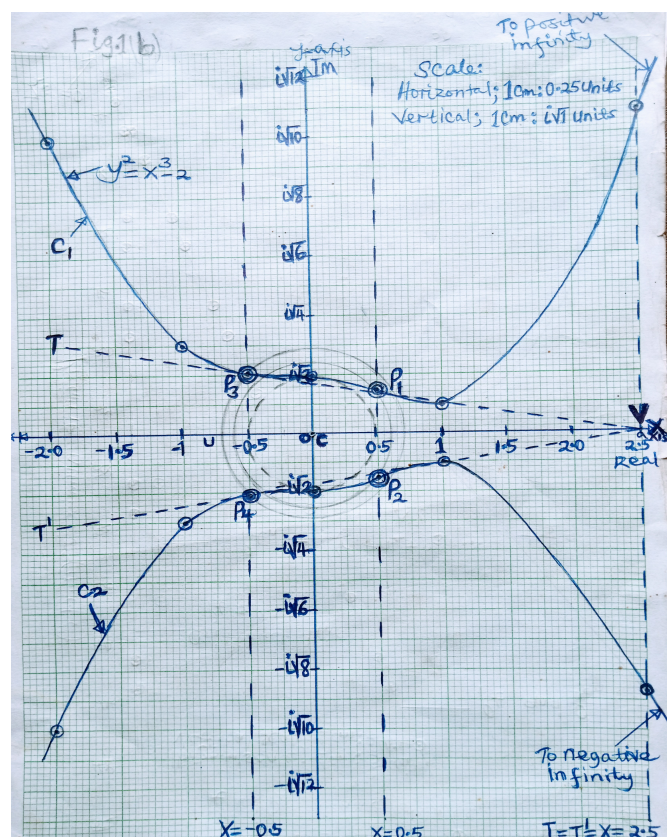 Fig.1(b)
y-axis
Im
To positive
infinity
Scale:
Horizontal; 1cm: 0.25 Units
Vertical; 1cm: i√1 units
i√12
i√10
y²=x³-2
i√8
C₁
i√6
i√4
T
i√2
P₃
P₁
V
-2.0
-1.5
-1
U
-0.5
0
C
0.5
1
1.5
-2.0
2.5
X
Real
-i√2
P₄
P₂
T'
-i√4
C2
-i√6
-i√8
-i√10
To negative
Infinity
-i√12
X=-0.5
X=0.5
T=T'=X=2.5